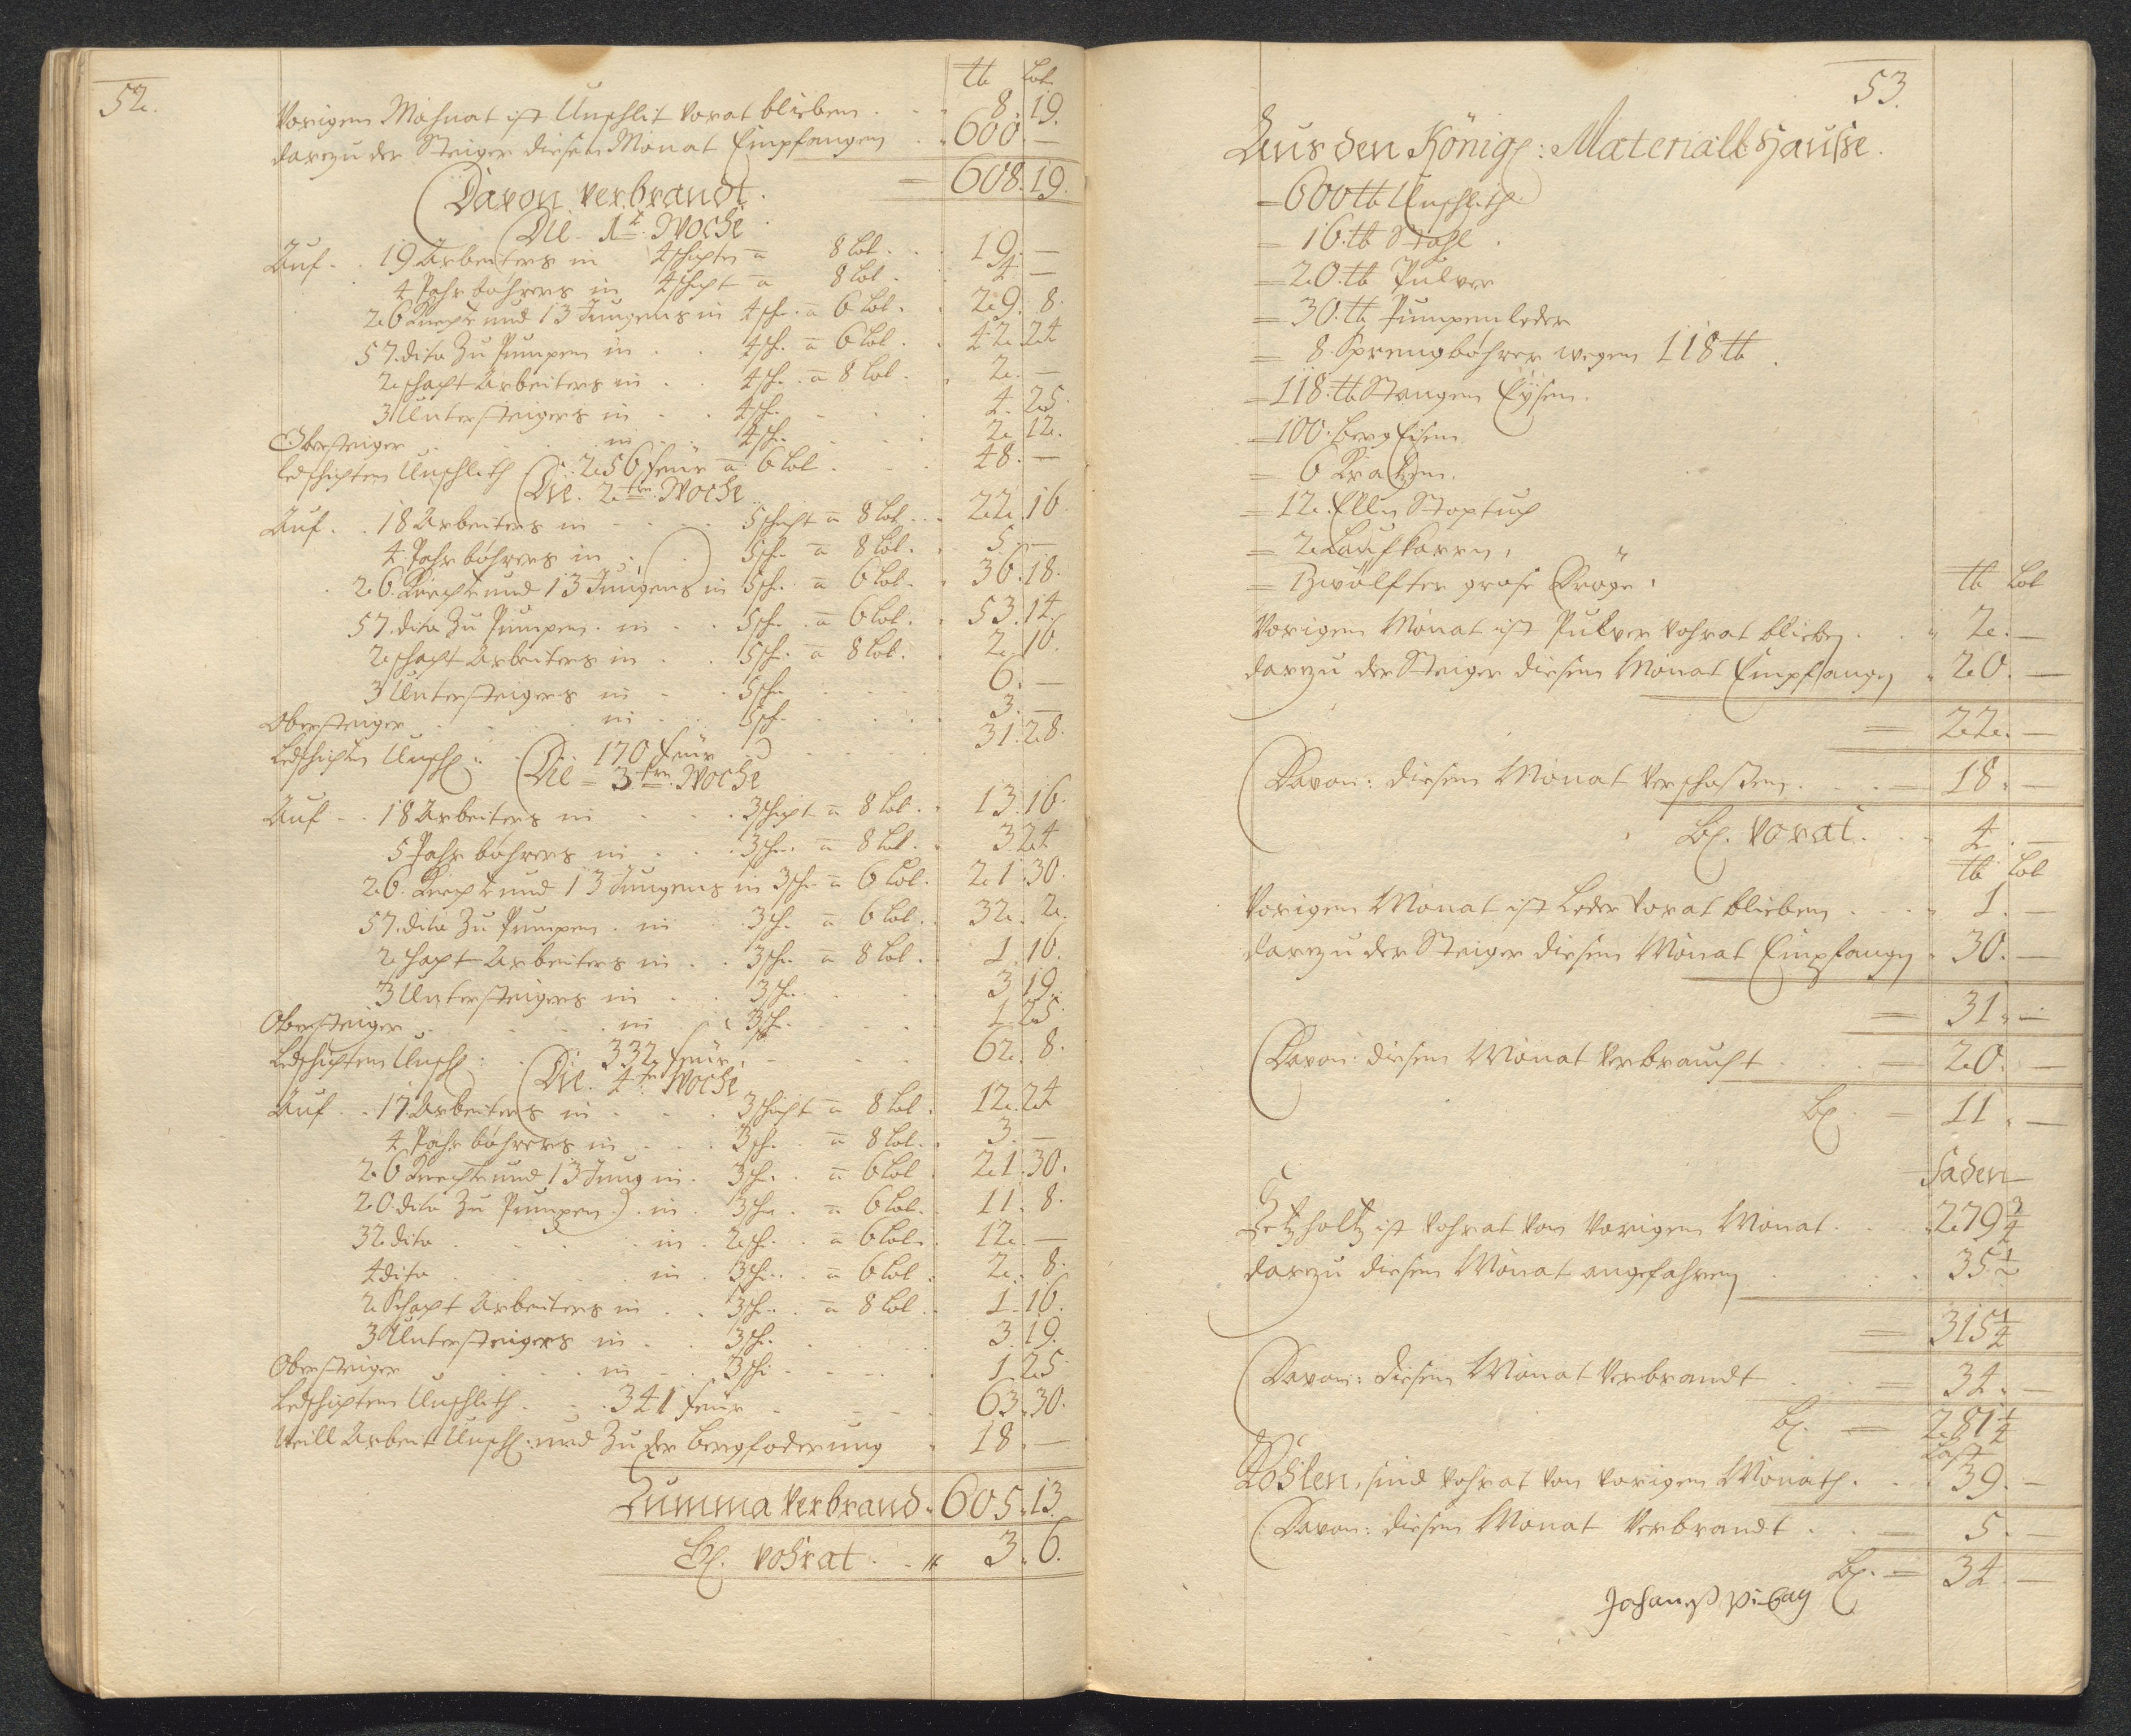 52.
℔ Lot.
Vorigen Mohnat ist Unschlit vorat blieben . . . 8. 19.
darzu der Steiger diesen Monat Empfangen . . 600. —
= 608. 19.
Davon verbrandt.
Die 1te Woche
Auf . . 19 Arbeiters in 4 schichten a 8 Lot . . . 19. —
4 Pahr bohrers in 4 schicht a 8 Lot . 4 —
26 Knecht und 13 Jungens in 4 sch. a 6 Lot . . 29. 8.
57. dito Zu Pumpen in . . 4 sch. a 6 Lot . . 42. 24
2 schacht Arbeiters in . . 4 sch. a 8 Lot . . 2. —
3 Untersteigers in . . 4 sch. . . . 4. 25.
Obersteiger . . . in . . 4 sch. . . . 2. 12.
Ledschichten Unschleth 256 feür a 6 Lot . . . 48. —
Die 2te Woche
Auf . . 18 Arbeiters in . . . 5 schicht a 8 Lot . . . 22. 16.
4. Pahr bohrers in . . 5 sch. a 8 Lot. . 5. —
26. Knecht und 13 Jungens in 5 sch. a 6 Lot . . 36. 18.
57. dito Zu Pumpen . in . . 5 sch. a 6 Lot. . 53. 14
2 schacht Arbeiters in . . 5 sch. a 8 Lot. . 2. 16.
3 Untersteigers in . . 5 sch. . . . 6. —
Obersteiger . . . in . . 5 sch. . . . 3. —
Ledschichten Unschl: . 170 feür . . . 31. 28.
Die = 3te Woche
Auf . . 18 Arbeiters in . . . 3 schicht a 8 Lot . . 13. 16.
5 Pahr bohrers in . . . 3 sch. a 8 Lot . . 3. 24
26. Knecht und 13 Jungens in 3 sch. a 6 Lot. 21. 30.
57. dito Zu Pumpen . in . 3 sch. a 6 Lot . . 32. 2.
2 schacht Arbeiters in . . 3 sch. a 8 Lot . . 1. 16.
3 Untersteigers in . . 3 sch. . . . 3 19.
Obersteiger . . . in . . 3 sch. . . . 1. 25.
Ledschichten Unschl: . . 332 feür . . . 62. 8.
Die 4te Woche
Auf . . 17 Arbeiters in . . . 3 schicht a 8 Lot . 12. 24
4 Pahr bohrers in . . . 3 sch. a 8 Lot . . 3. —
26 Knecht und 13 Jung in . 3 sch. a 6 Lot . 21. 30.
20. dito Zu Pumpen . in . 3 sch. a 6 Lot . 11. 8.
32 dito . . . in . 2 sch. a 6 Lot . 12. —
4 dito . . . in . 3 sch. a 6 Lot . 2. 8.
2 Schacht Arbeiters in . . 3 sch. a 8 Lot . 1. 16.
3 Untersteigers in . . 3 sch. . . . 3. 19.
Obersteiger . . . in . . 3 sch . . . 1. 25.
Ledschichten Unschleth . . . 341 feür . . . 63. 30.
Weill Arbeit Unschl: und Zu der Bergfoderung . 18. —
Summa verbrand . 605. 13.
Bl. vohrat . . 3. 6.
53.
Aus den Königl: Materiall Hausse.
= 600 ℔ Unschlith.
= 16. ℔ Stahl .
= 20. ℔ Pulver
= 30. ℔ Pumpenleder
= 8. Sprengbohrer wegen 118 ℔ .
= 118. ℔ Stangen Eysen.
= 100. Berg Eisen.
= 6 Kratzen.
= 12. Ellen Stoptuch
= 2 Laufkarren.
= Zwölfter grose Tröge .
℔ Lot
Vorigen Monat ist Pulver vohrat blieben . . 2. —
darzu der Steiger diesen Monat Empfangen . 20. —
= 22. —
Davon: diesen Monat verschossen . . . = 18. —
Bl. vorat . . . 4. —
℔ Lot
Vorigen Monat ist Leder vorat blieben . . . 1. —
darzu der Steiger diesen Monat Empfangen . 30. —
= 31. —
Davon: diesen Monat verbraucht . . . = 20. —
Bl. = 11. —
Faden
Setzholtz ist vohrat von vorigen Monat . . . 279 3/4
darzu diesen Monat angefahren . . . 35 1/2
= 315 1/4
Davon: diesen Monat verbrandt . . = 34. —
Bl. = 281 1/4
Last
Kohlen, sind vohrat von vorigen Monath . . . 39. —
Davon: diesen Monat verbrandt . . = 5. —
Bl. = 34. —